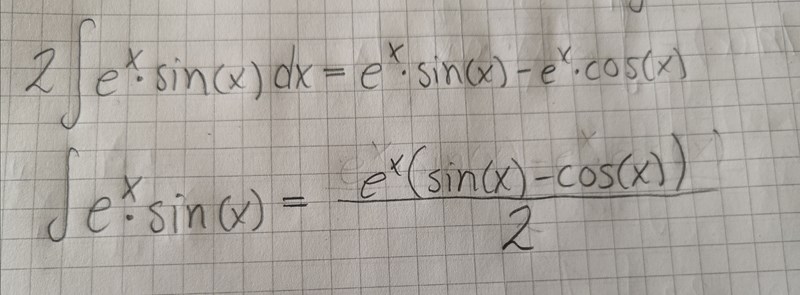 2∫eˣ·sin(x) dx = eˣ·sin(x) - eˣ·cos(x)
∫eˣ·sin(x) = eˣ(sin(x) - cos(x)) / 2